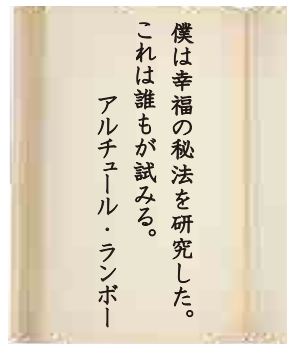 僕は幸福の秘法を研究した。
これは誰もが試みる。
アルチュール・ランボー